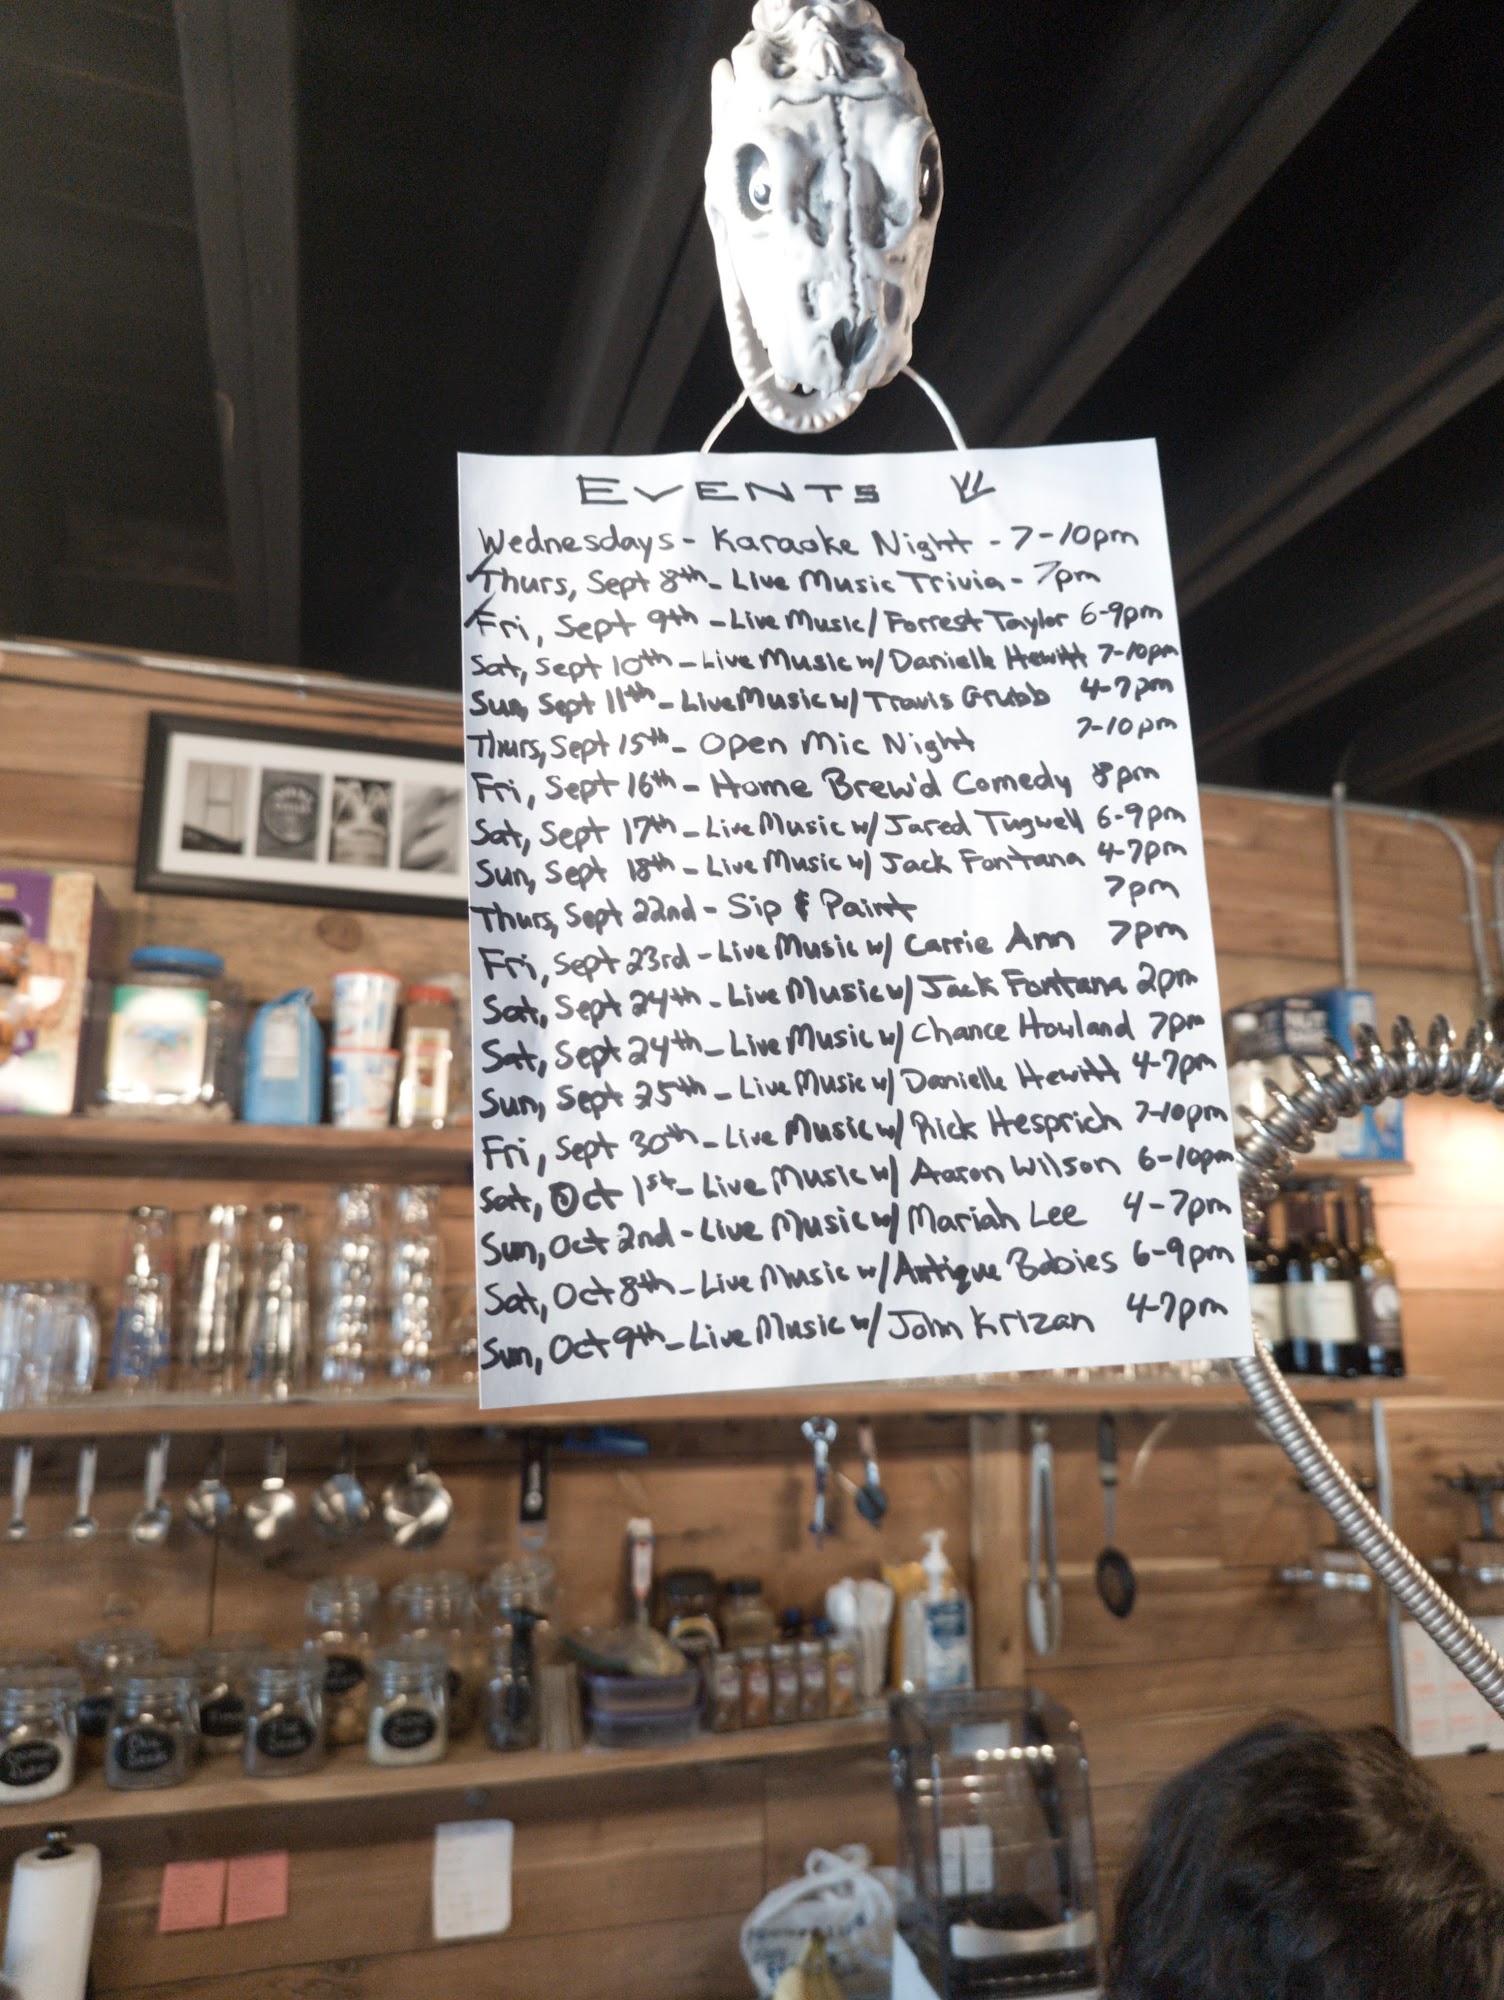 EVENTS
Wednesdays - Karaoke Night - 7-10pm
Thurs, Sept 8th - Live Music Trivia - 7pm
Fri, Sept 9th - Live Music/ Forrest Taylor 6-9pm
Sat, Sept 10th - Live Music w/ Danielle Hewitt 7-10pm
Sun, Sept 11th - Live Music w/ Travis Grubb 4-7pm
Thurs, Sept 15th - Open Mic Night 7-10pm
Fri, Sept 16th - Home Brew'd Comedy 8pm
Sat, Sept 17th - Live Music w/ Jared Tugwell 6-9pm
Sun, Sept 18th - Live Music w/ Jack Fontana 4-7pm
Thurs, Sept 22nd - Sip & Paint 7pm
Fri, Sept 23rd - Live Music w/ Carrie Ann 7pm
Sat, Sept 24th - Live Music w/ Jack Fontana 2pm
Sat, Sept 24th - Live Music w/ Chance Howland 7pm
Sun, Sept 25th - Live Music w/ Danielle Hewitt 4-7pm
Fri, Sept 30th - Live Music w/ Rick Hesprich 7-10pm
Sat, Oct 1st - Live Music w/ Aaron Wilson 6-10pm
Sun, Oct 2nd - Live Music w/ Mariah Lee 4-7pm
Sat, Oct 8th - Live Music w/ Antique Babies 6-9pm
Sun, Oct 9th - Live Music w/ John Krizan 4-7pm